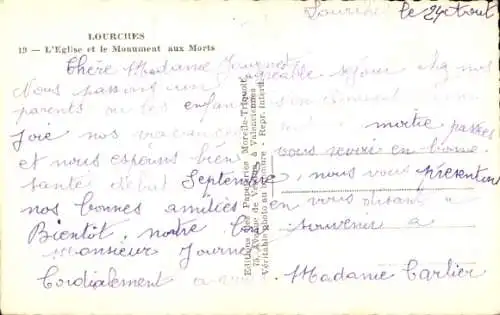 LOURCHES
19 — L'Eglise et le Monument aux Morts
Lourches le 24 Aout
Chère Madame Journet
Nous passons un agréable séjour chez nos
parents ou les enfants
Joie nos vacances moitié passées
et nous espérons bien vous revoir en bonne
santé début Septembre, nous vous présentons
nos bonnes amitiés en vous disant "a
Bientôt, notre bon souvenir a
Monsieur Journet
Cordialement a
Madame Carlier
Editions des Papeteries Morelle-Triquoit
75, Avenue de à Valenciennes
Véritable photo au Bromure - Repr. interd.